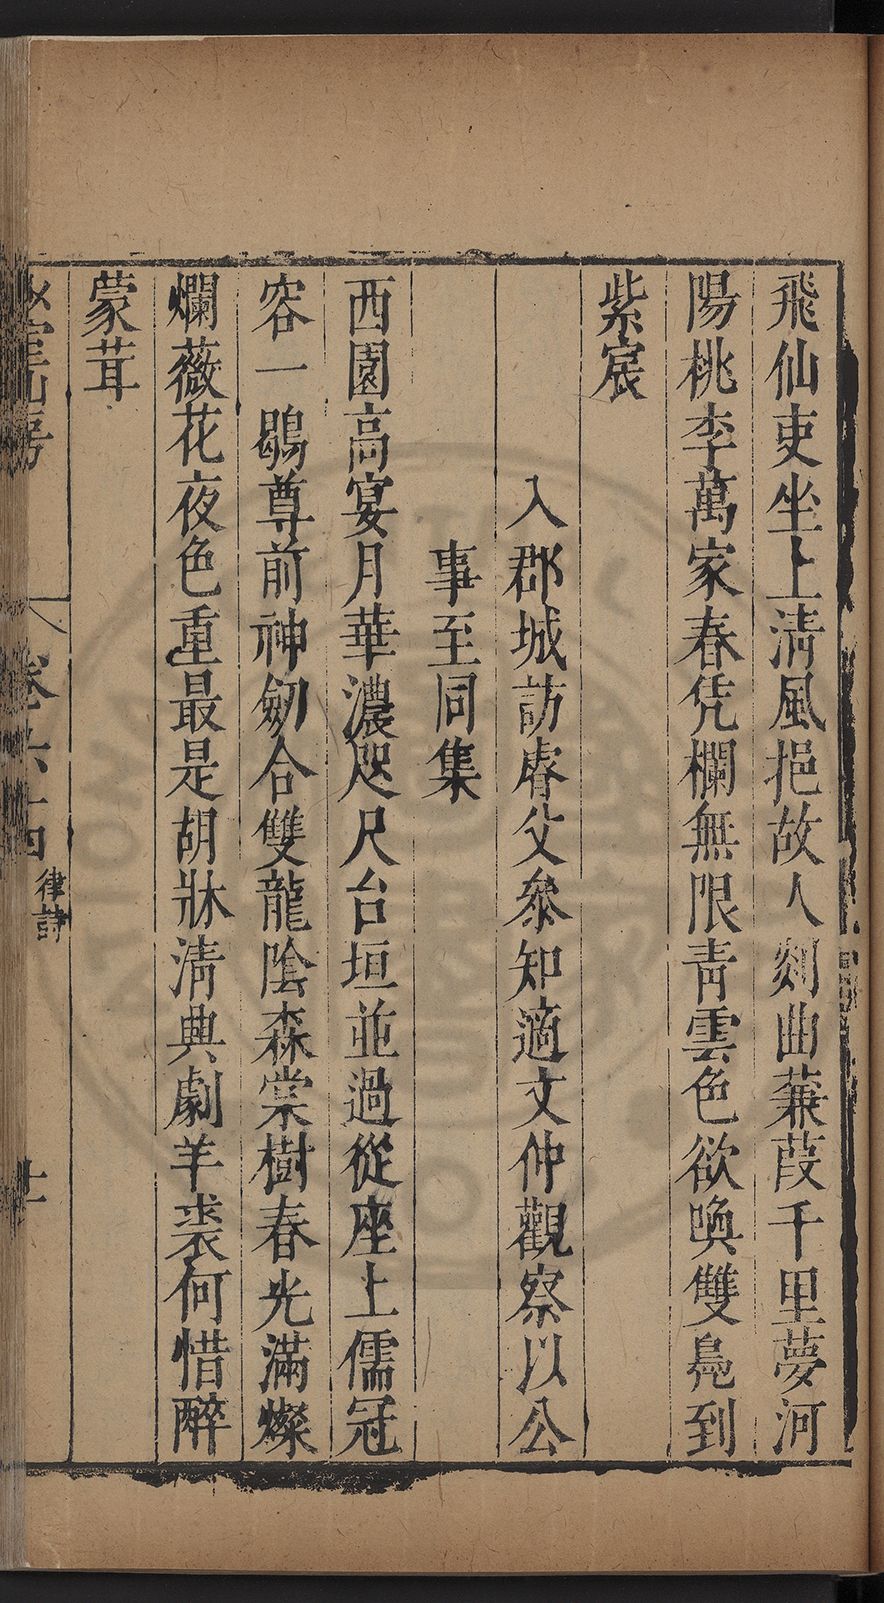 飛仙吏坐上清風挹故人剡曲蒹葭千里夢河
陽桃李萬家春凭欄無限青雲色欲喚雙鳧到
紫宸
入郡城訪睿父參知適文仲觀察以公
事至同集
西園高宴月華濃咫尺台垣並過從座上儒冠
容一鶡尊前神劒合雙龍陰森棠樹春光滿燦
爛薇花夜色重最是胡牀清典劇羊裘何惜醉
蒙茸
山房
卷六十四
律詩